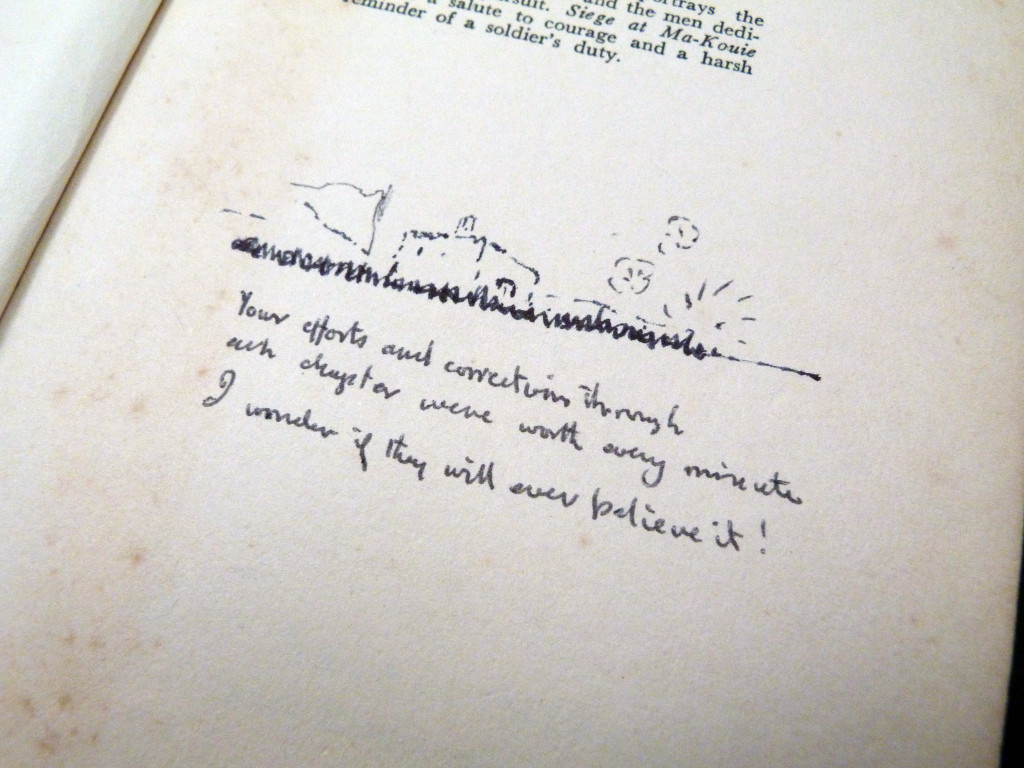 portrays the
rsuit. and the men dedi-
a salute to courage Siege at Ma-Kouie
reminder of a soldier's duty. and a harsh
Your efforts and corrections through
each chapter were worth every minute
I wonder if they will ever believe it!